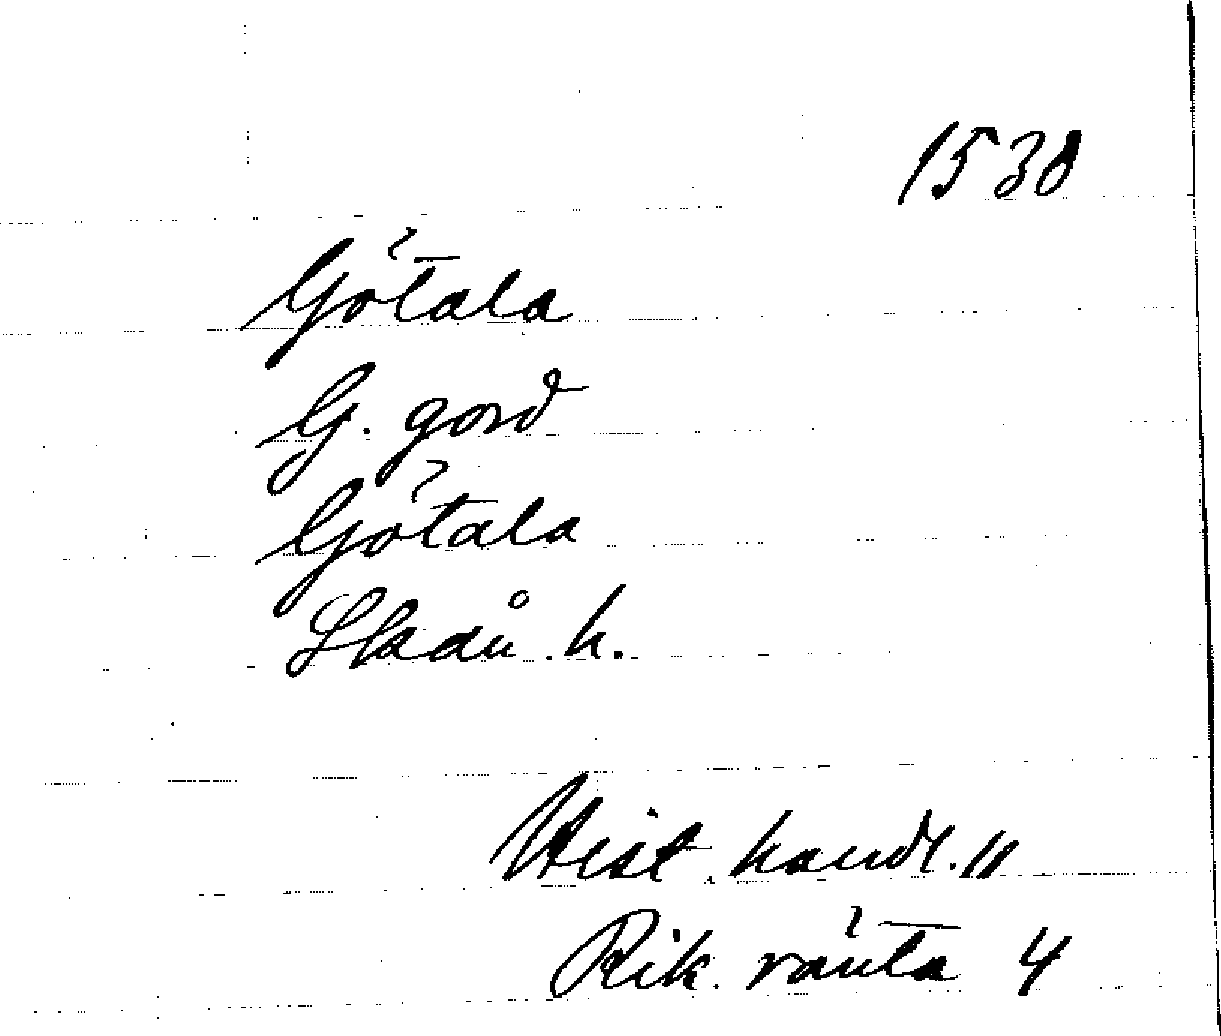 1530
Götala
G. gord
Götala
h.
Hist. handl. 11
Rik. ränta 4